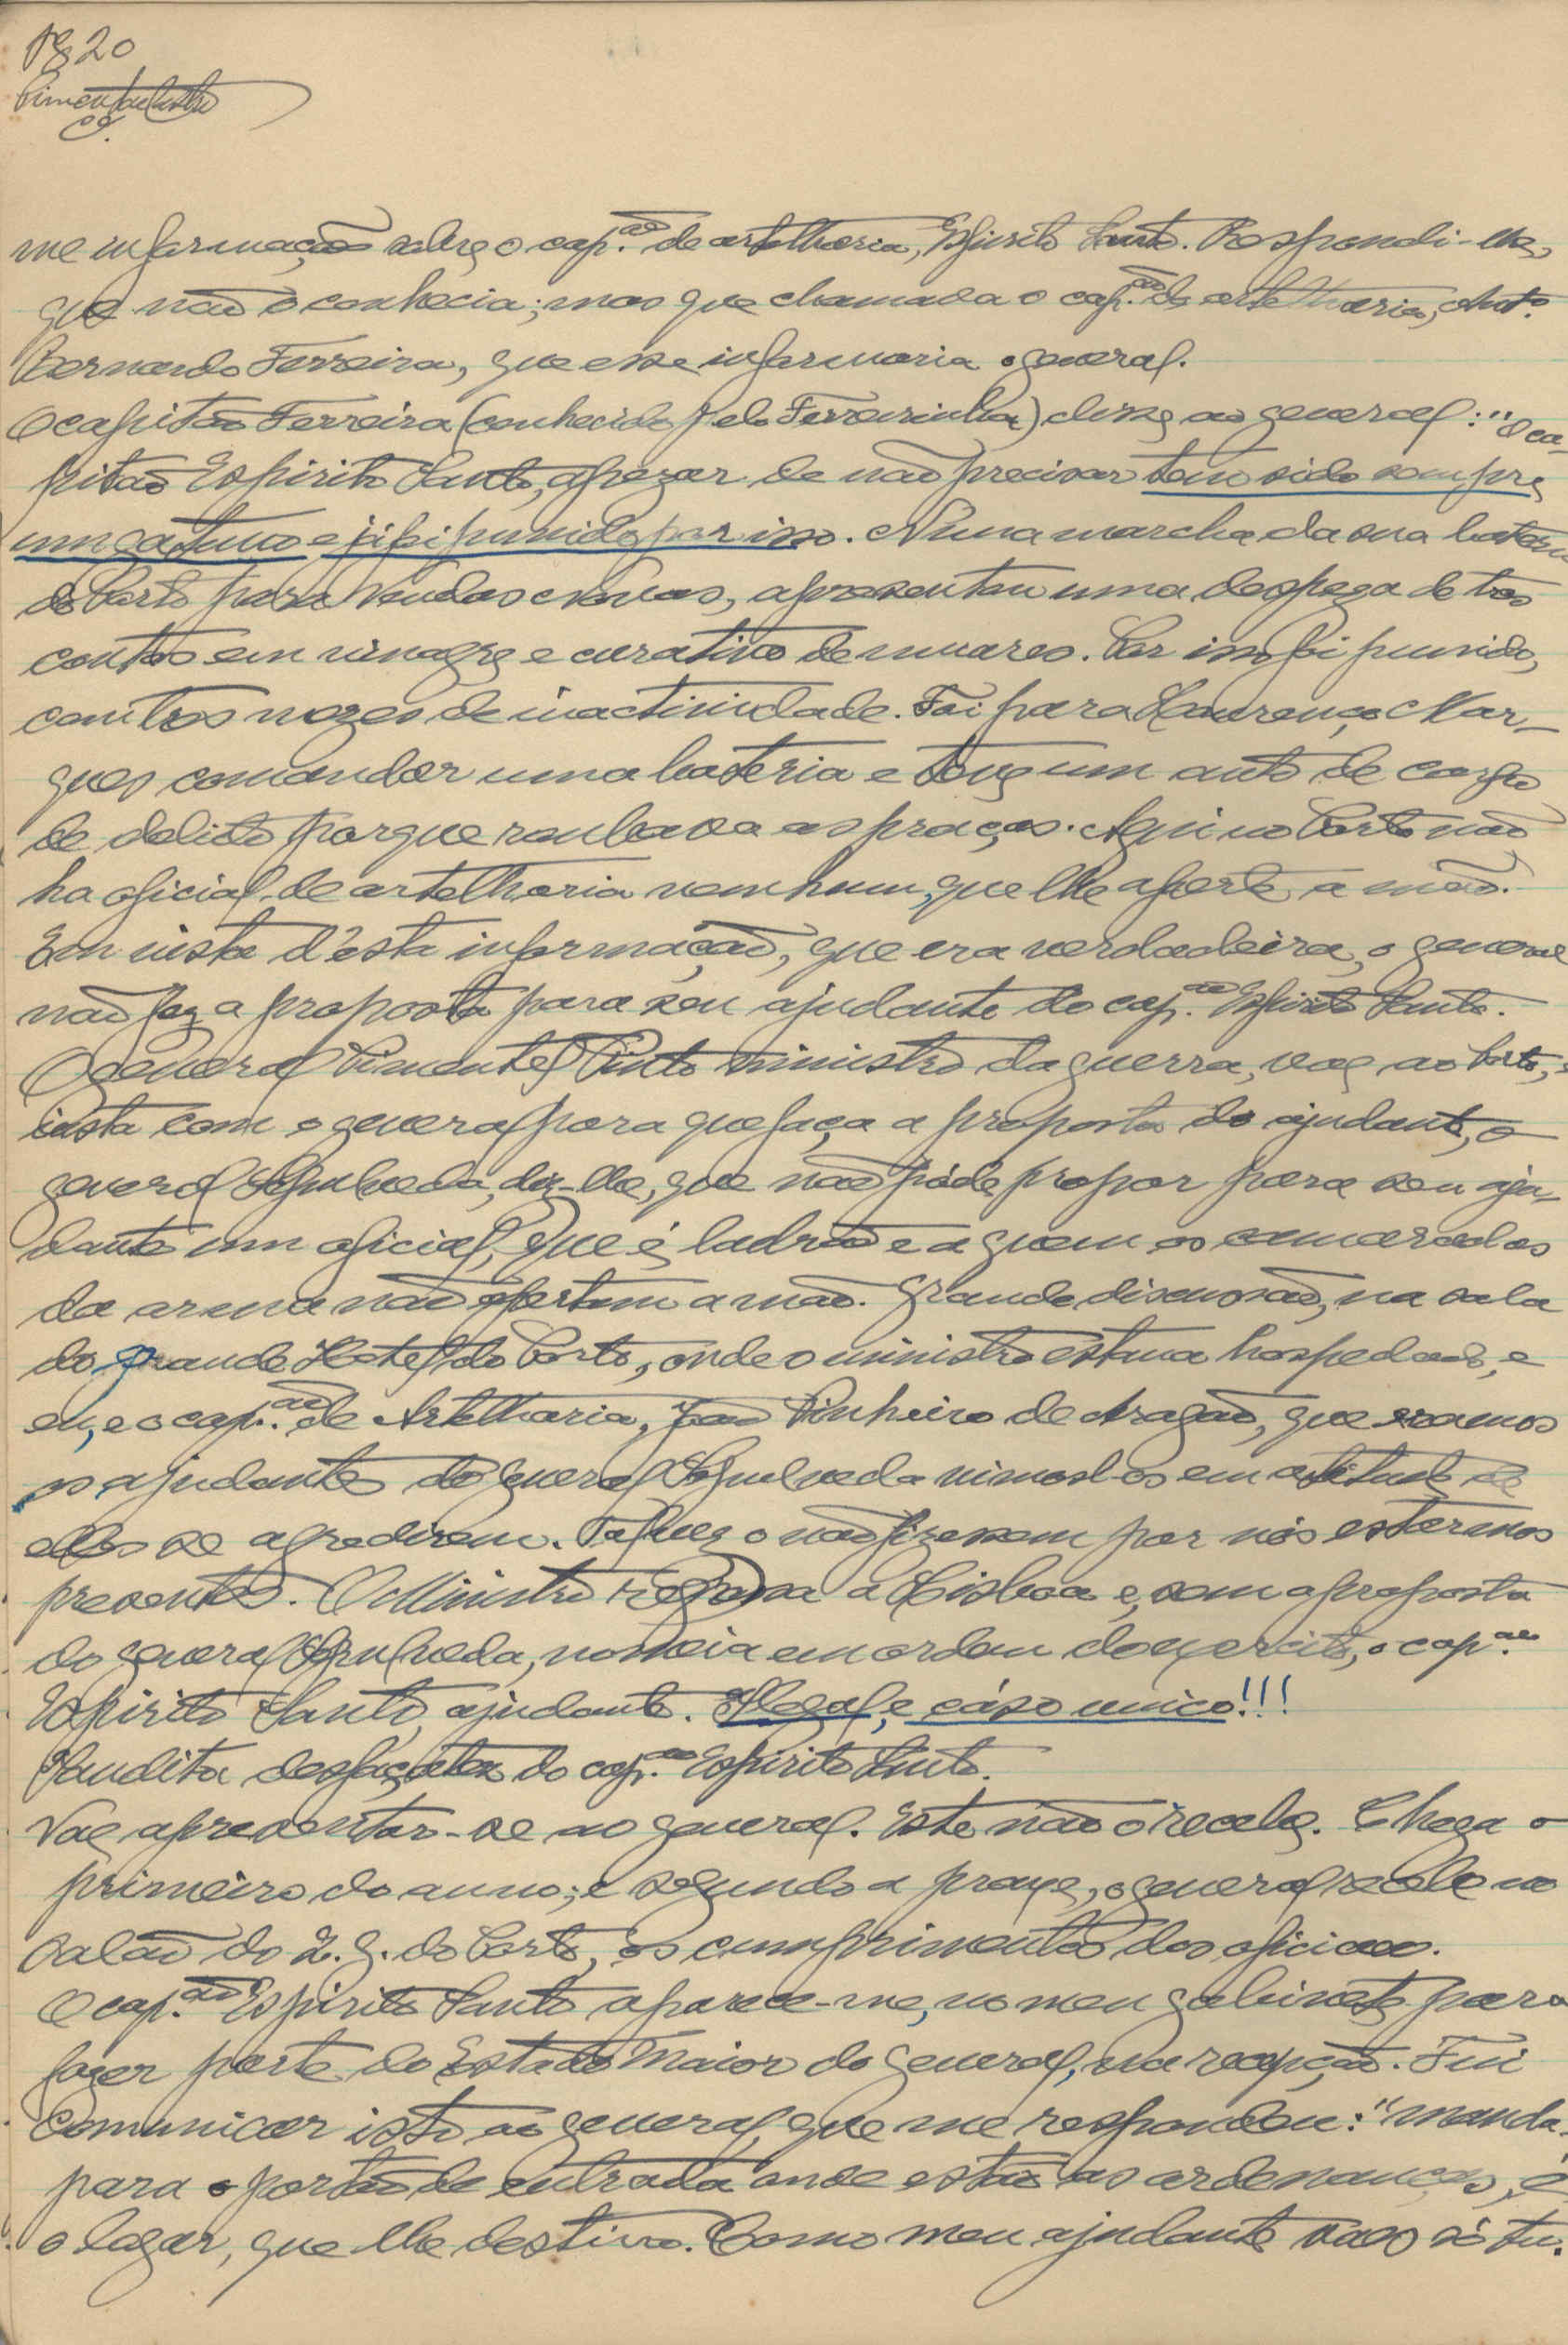 20
me informação sobre o cap.ão de artelharia, Espirito Santo. Respondi-lhe,
que não o conhecia; mas que chamava o cap.ão de artelharia, Antº
Bernardo Ferreira, que esse informaria o general.
O capitão Ferreira (conhecido pelo Ferreirinha) disse ao general: "O ca-
pitão Espirito Santo, apezar de não precisar tem sido sempre
um gatuno e já foi punido por isso. Numa marcha da sua bateria
do Porto para Vendas Novas, apresentou uma despeza de tres
contos em vinagre e curativo de muares. Por isso foi punido,
com tres mezes de inactividade. Foi para Lourenço Mar-
ques comandar uma bateria e teve um auto de corpo
de delicto porque roubava as praças. Aqui no Porto não
ha oficial de artelharia nenhum, que lhe aperte a mão.
Em vista d'esta informação, que era verdadeira, o general
não fez a proposta para seu ajudante do cap.ão Espirito Santo.
O general Pimentel Pinto ministro da guerra, vae ao Porto, e
insta com o general para que faça a proposta do ajudante, o
general Sepulveda, diz-lhe, que não póde propor para seu aju-
dante um oficial, que é ladrão e a quem os camaradas
da arma não apertam a mão. Grande discussão, na sala
do Grande Hotel do Porto, onde o ministro estava hospedado, e
eu, e o cap.ão de Artelharia, João Pinheiro de Aragão, que eramos
os ajudantes do general Sepulveda vimol-os em atitude de
elles se agredirem. Talvez o não fizessem por nós estarmos
presentes. O Ministro regressa a Lisboa e, sem a proposta
do general Sepulveda, nomeia em ordem do exercito, o cap.ão
Espirito Santo, ajudante. Illegal, e cáso unico!!!
Inaudita desfaçatez do cap.ão Espirito Santo.
Vae apresentar-se ao general. Este não o recebe. Chega o
primeiro do anno; e segundo a praxe, o general recebe no
salão do Q. G. do Porto, os cumprimentos dos oficiaes.
O cap.ão Espirito Santo aparece-me, no meu gabinete para
fazer parte do Estado Maior do general, na recepção. Fui
comunicar isto ao general, que me respondeu: "manda-
para o portão de entrada onde estão as ordenanças, é
o logar, que lhe destino. Como meu ajudante vaes só tu.